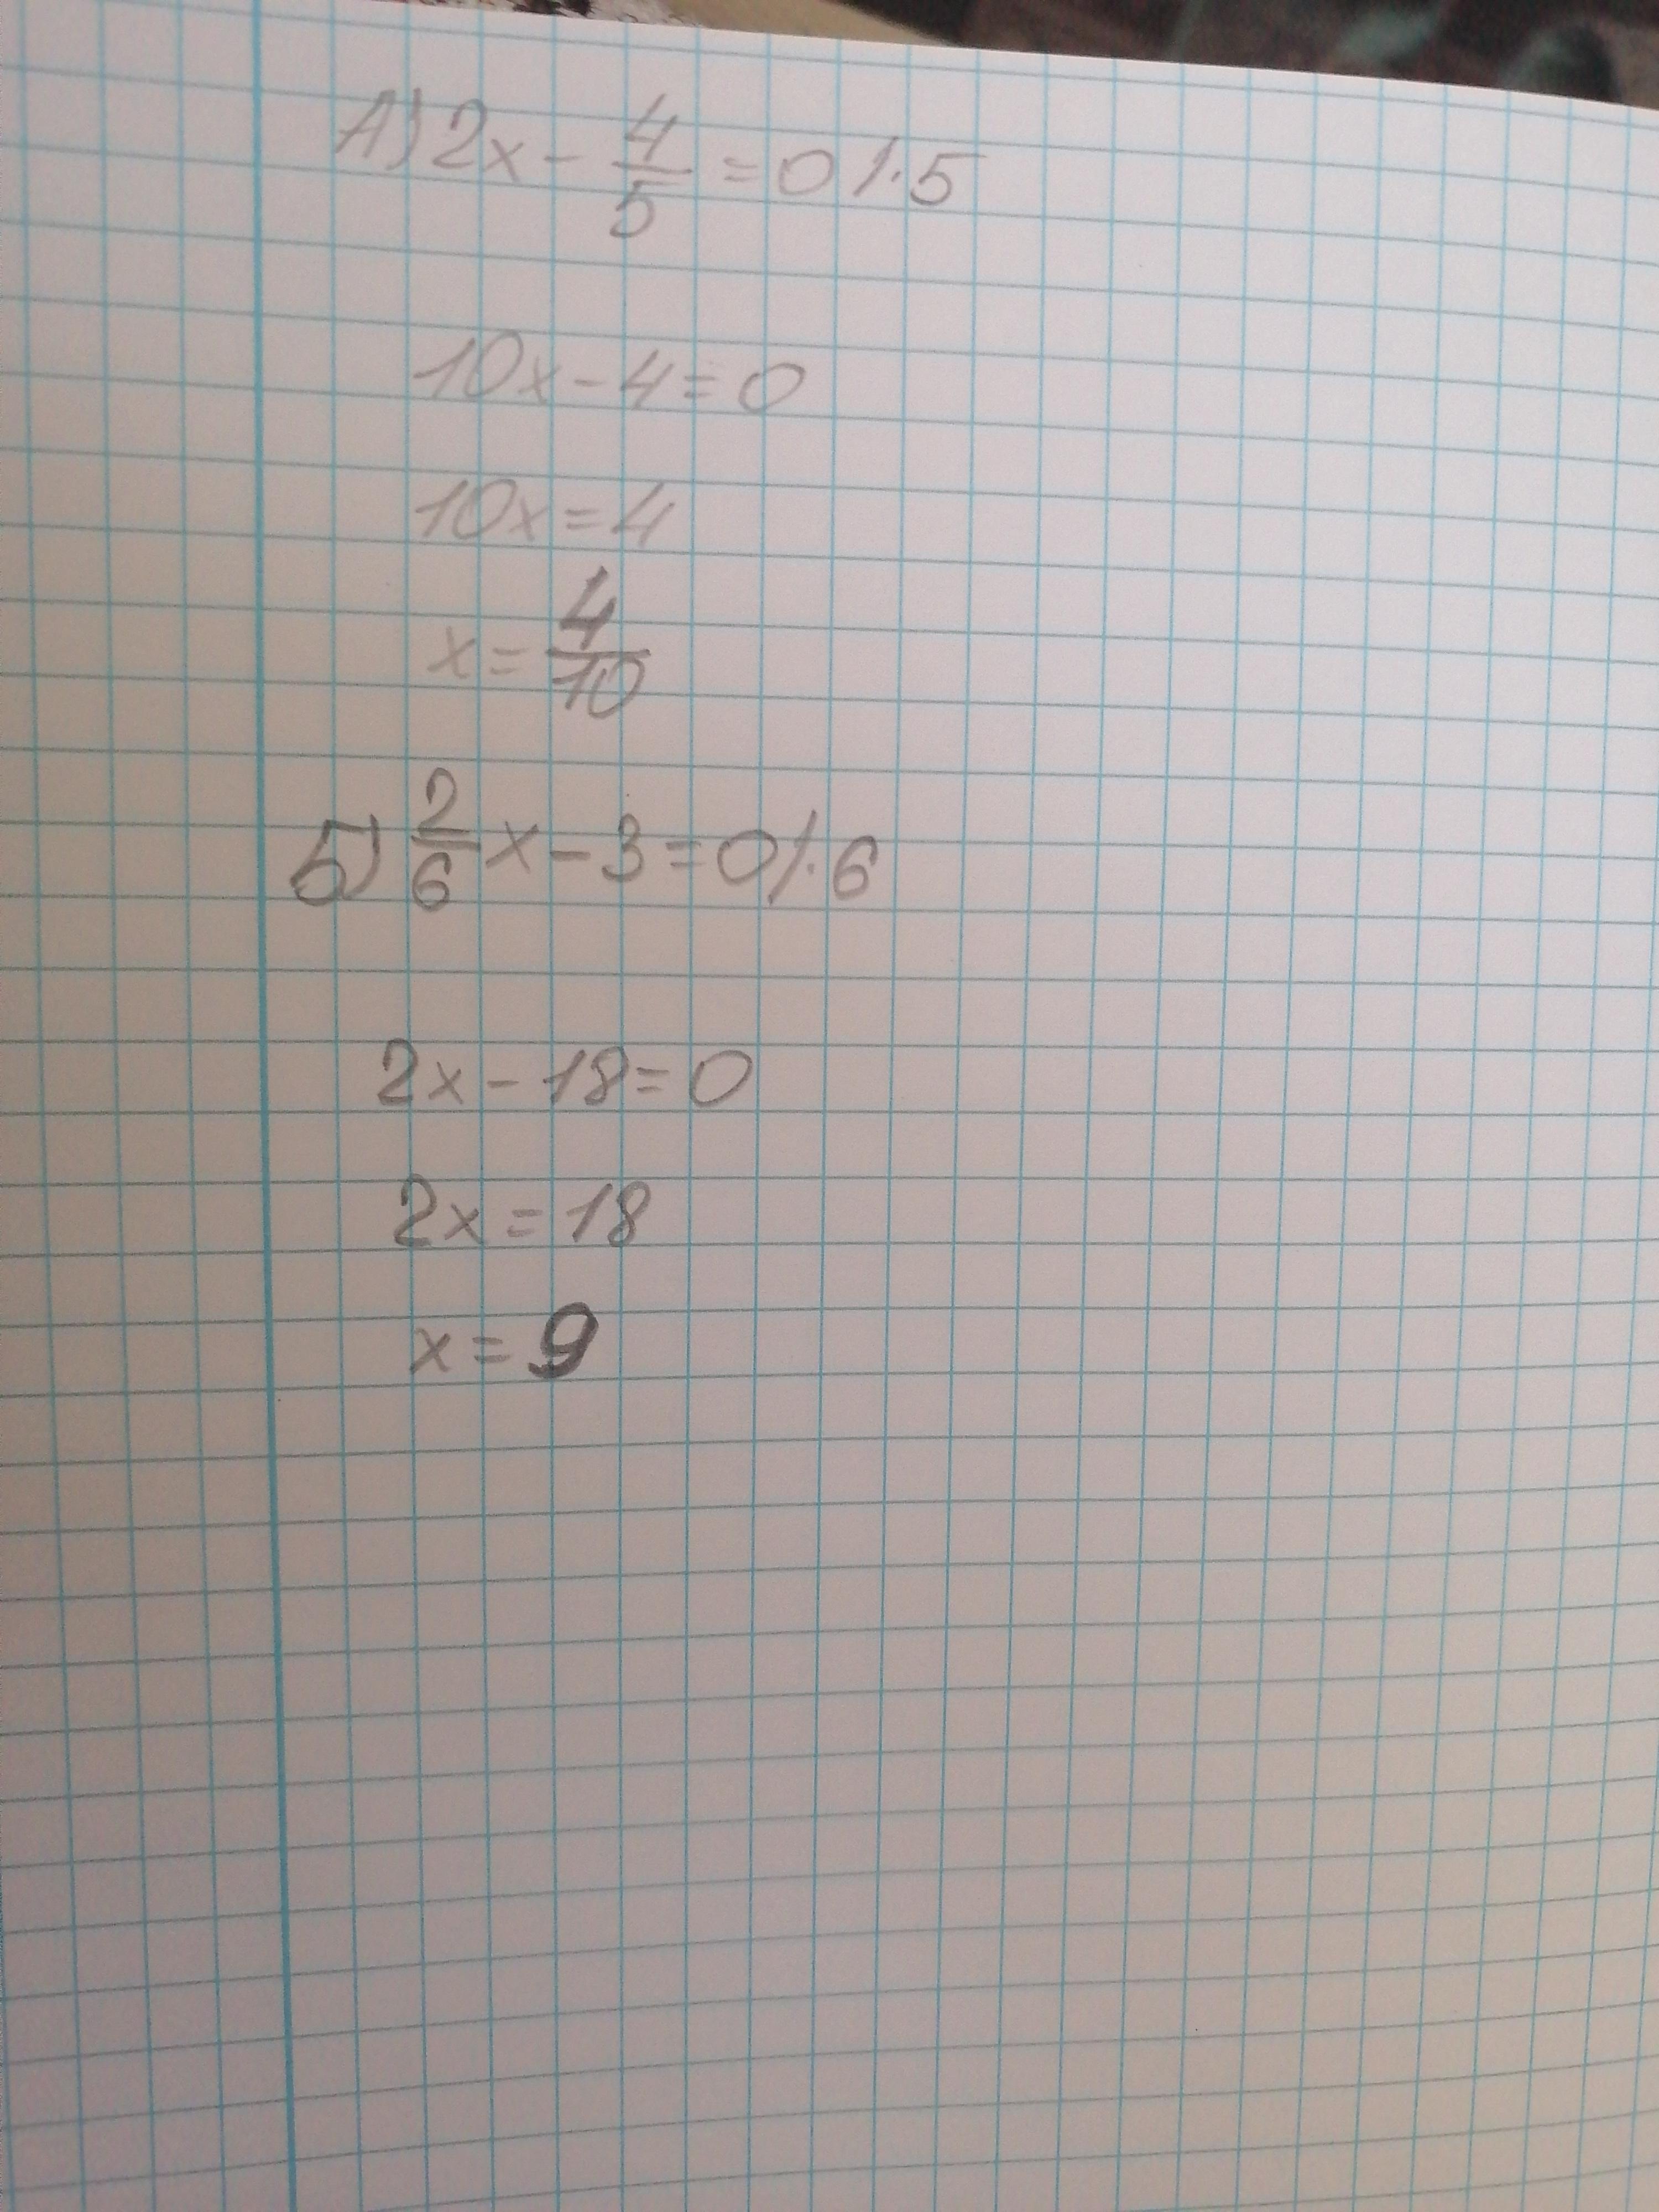 А) 2x - 4/5 = 0 /·5
10x - 4 = 0
10x = 4
x = 4/10
Б) 2/6 x - 3 = 0 /·6
2x - 18 = 0
2x = 18
x = 9